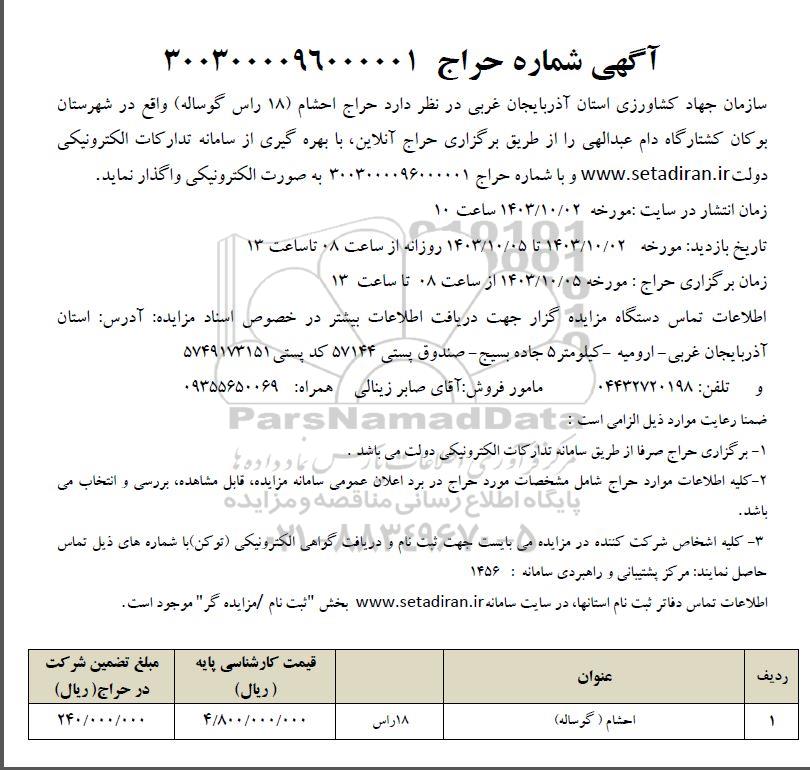 آگهی شماره حراج ۳۰۰۳۰۰۰۰۹۶۰۰۰۰۰۱
سازمان جهاد کشاورزی استان آذربایجان غربی در نظر دارد حراج احشام (۱۸ راس گوساله) واقع در شهرستان
بوکان کشتارگاه دام عبدالهی را از طریق برگزاری حراج آنلاین، با بهره گیری از سامانه تدارکات الکترونیکی
دولت www.setadiran.ir و با شماره حراج ۳۰۰۳۰۰۰۰۹۶۰۰۰۰۰۱ به صورت الکترونیکی واگذار نماید.
زمان انتشار در سایت :مورخه ۱۴۰۳/۱۰/۰۲ ساعت ۱۰
تاریخ بازدید: مورخه ۱۴۰۳/۱۰/۰۲ تا ۱۴۰۳/۱۰/۰۵ روزانه از ساعت ۰۸ تاساعت ۱۳
زمان برگزاری حراج : مورخه ۱۴۰۳/۱۰/۰۵ از ساعت ۰۸ تا ساعت ۱۳
اطلاعات تماس دستگاه مزایده گزار جهت دریافت اطلاعات بیشتر در خصوص اسناد مزایده: آدرس: استان
آذربایجان غربی- ارومیه -کیلومتر۵ جاده بسیج- صندوق پستی ۵۷۱۴۴ کد پستی ۵۷۴۹۱۷۳۱۵۱
و تلفن: ۰۴۴۳۲۷۲۰۱۹۸ مامور فروش:آقای صابر زینالی همراه: ۰۹۳۵۵۶۵۰۰۶۹
ParsNamadData
ضمنا رعایت موارد ذیل الزامی است :
۱- برگزاری حراج صرفا از طریق سامانه تدارکات الکترونیکی دولت می باشد .
مرکز فرآوری اطلاعات پارس نماد داده ها
۲-کلیه اطلاعات موارد حراج شامل مشخصات مورد حراج در برد اعلان عمومی سامانه مزایده، قابل مشاهده، بررسی و انتخاب می
باشد.
پایگاه اطلاع رسانی مناقصه و مزایده
۰۲۱-۸۸۳۴۹۶۷۰-۵
۳- کلیه اشخاص شرکت کننده در مزایده می بایست جهت ثبت نام و دریافت گواهی الکترونیکی (توکن)با شماره های ذیل تماس
حاصل نمایند: مرکز پشتیبانی و راهبردی سامانه : ۱۴۵۶
اطلاعات تماس دفاتر ثبت نام استانها، در سایت سامانه www.setadiran.ir بخش "ثبت نام /مزایده گر" موجود است.
ردیف عنوان قیمت کارشناسی پایه مبلغ تضمین شرکت
( ریال) در حراج( ریال)
۱ احشام ( گوساله) ۱۸راس ۴/۸۰۰/۰۰۰/۰۰۰ ۲۴۰/۰۰۰/۰۰۰